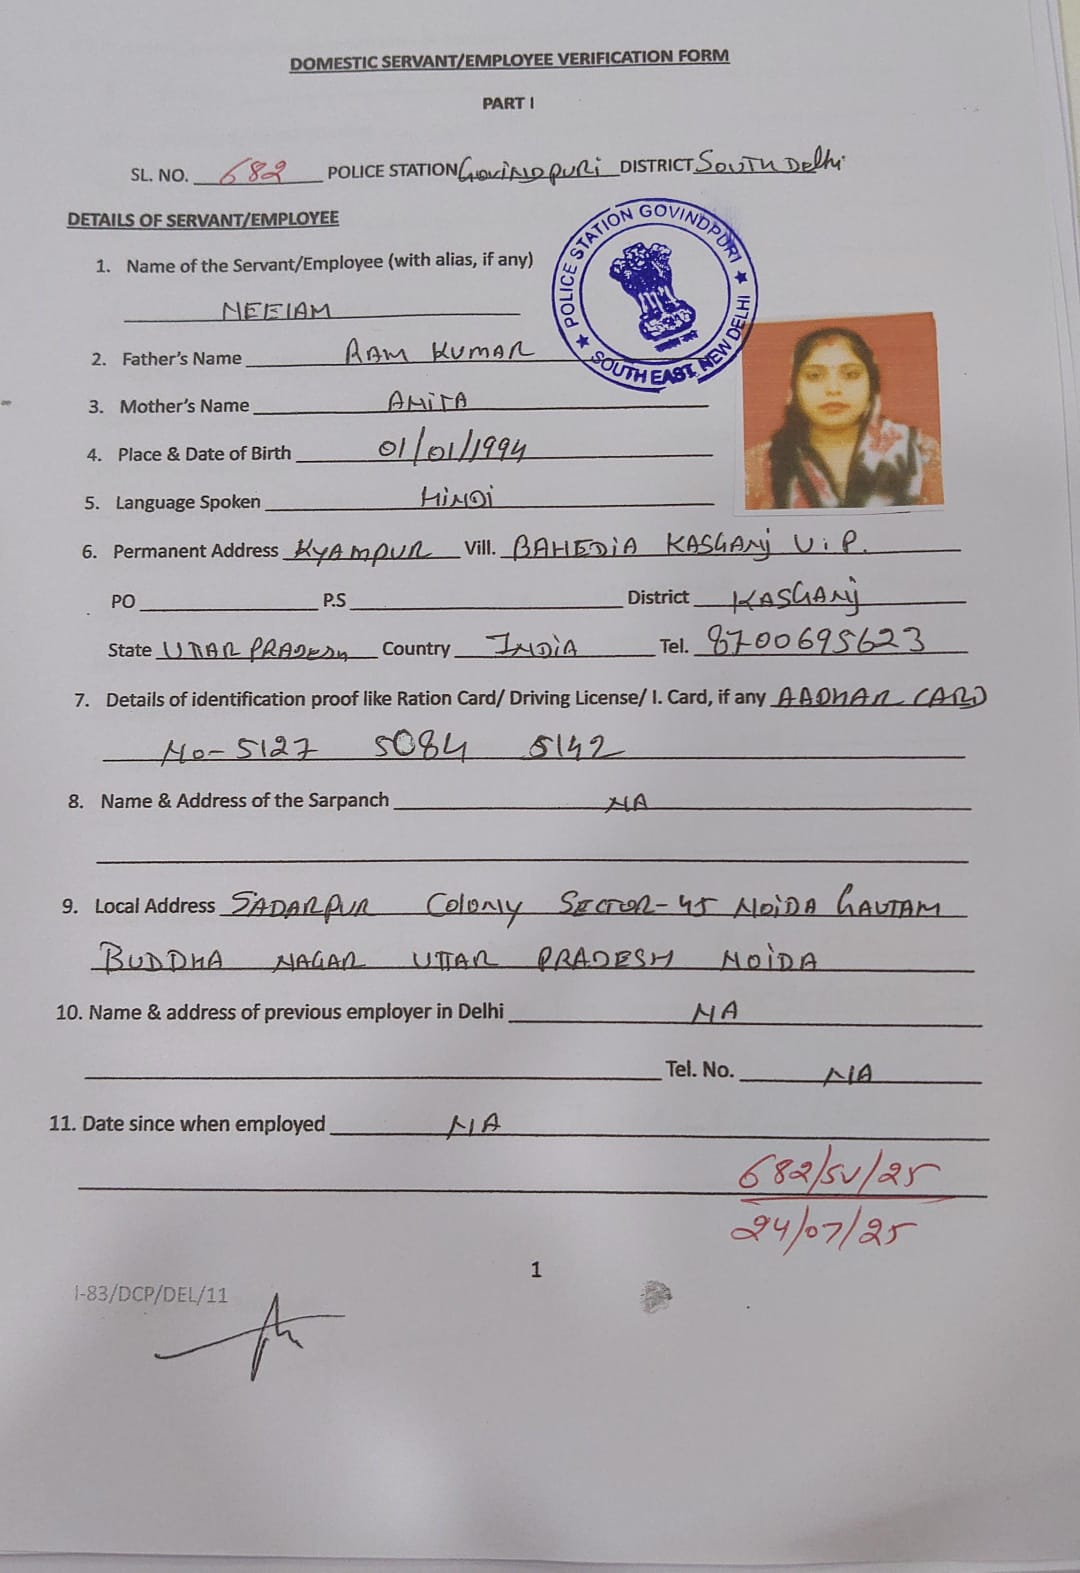 DOMESTIC SERVANT/EMPLOYEE VERIFICATION FORM
PART I
SL. NO. 682 POLICE STATION GOVINDPURI DISTRICT SOUTH DELHI
DETAILS OF SERVANT/EMPLOYEE
POLICE STATION GOVINDPURI ★ SOUTH EAST, NEW DELHI ★
1. Name of the Servant/Employee (with alias, if any)
NEElAM
2. Father's Name RAM KUMAR
3. Mother's Name AMITA
4. Place & Date of Birth 01/01/1994
5. Language Spoken HINDI
6. Permanent Address KYAMPUR Vill. BAHEDIA KASGANj U.P.
PO P.S District KASGANj
State UTTAR PRADESH Country INDIA Tel. 8700695623
7. Details of identification proof like Ration Card/ Driving License/ I. Card, if any AADHAR CARD
No- 5127 5084 5142
8. Name & Address of the Sarpanch NA
9. Local Address SADARPUR COLONY SECTOR-45 NOIDA GAUTAM
BUDDHA NAGAR UTTAR PRADESH NOIDA
10. Name & address of previous employer in Delhi NA
Tel. No. NA
11. Date since when employed NA
682/SV/25
24/07/25
1
I-83/DCP/DEL/11